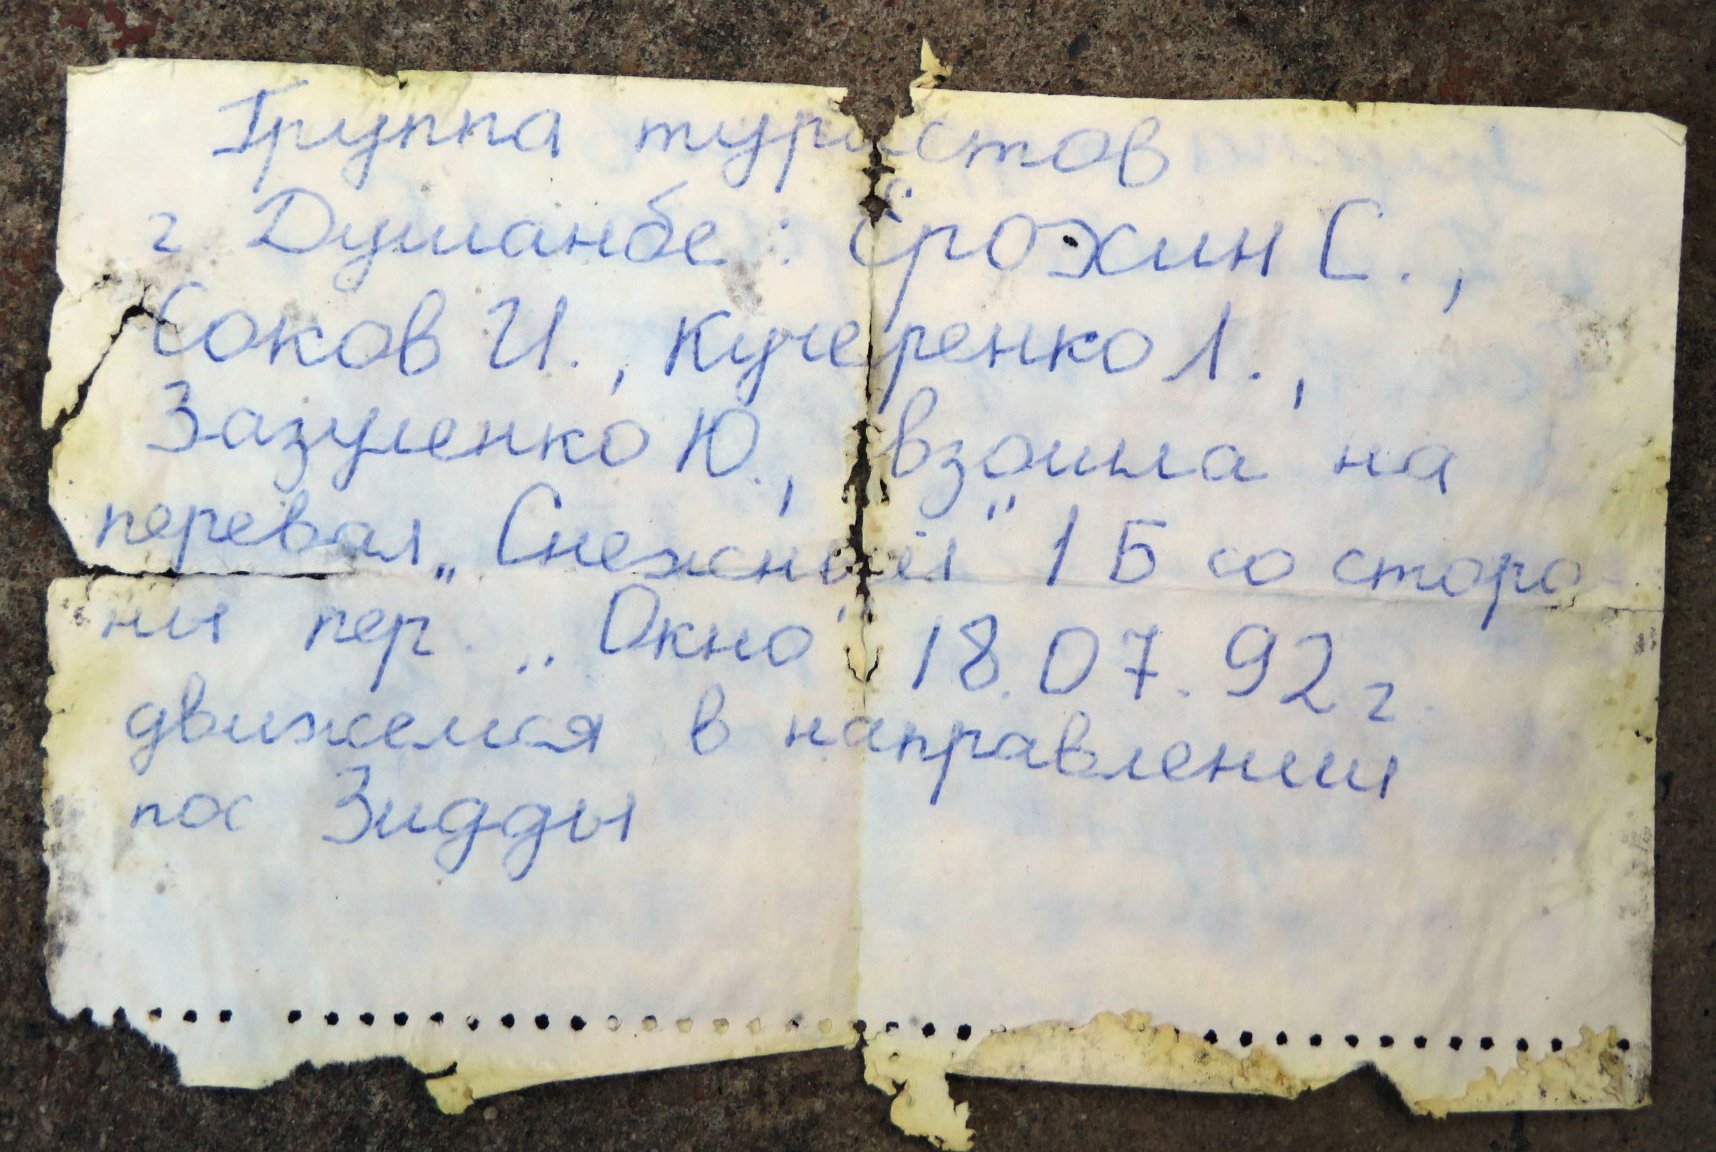 Группа туристов
г. Душанбе: Ёрохин С.,
Соков И., Кучеренко Л.,
Зазуленко Ю., взошла на
перевал „Снежный" 1Б со сторо
ны пер. „Окно" 18.07.92г
движемся в направлении
пос Зидды